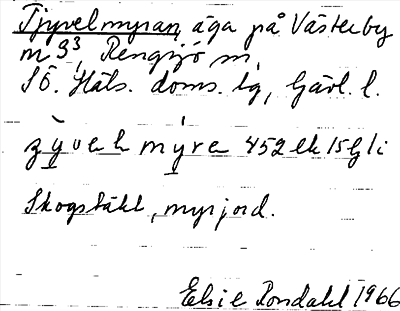 Tjyvelmyran, äga på Västerby
n 3³, Rengsjö sn,
SÖ. Häls. doms. lg, Gävl. l.
myre 452 ek 15G/i
Skogstäkt, myrjord.
Elsie Rondahl 1966